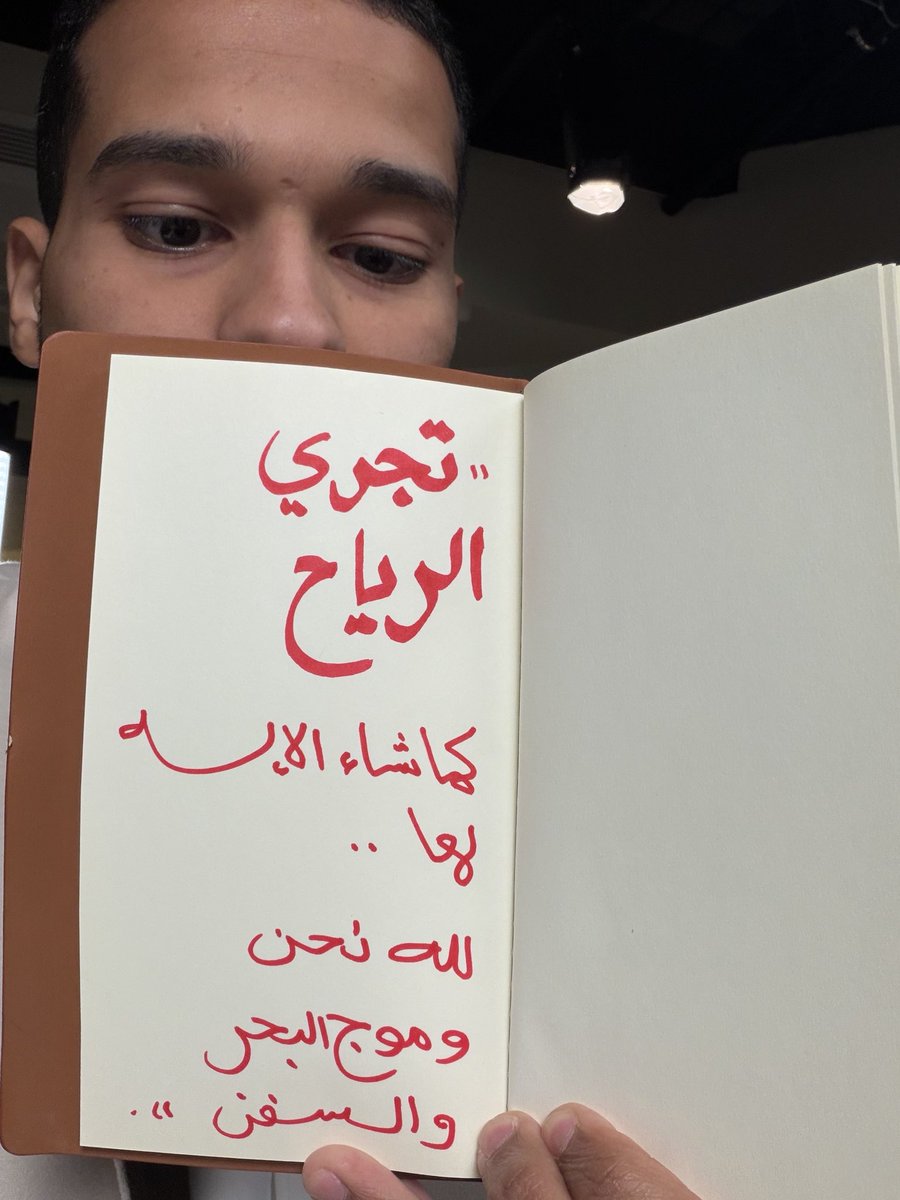 " تجري
الرياح
كما شاء الإله
لها ..
لله نحن
وموج البحر
والسفن ".